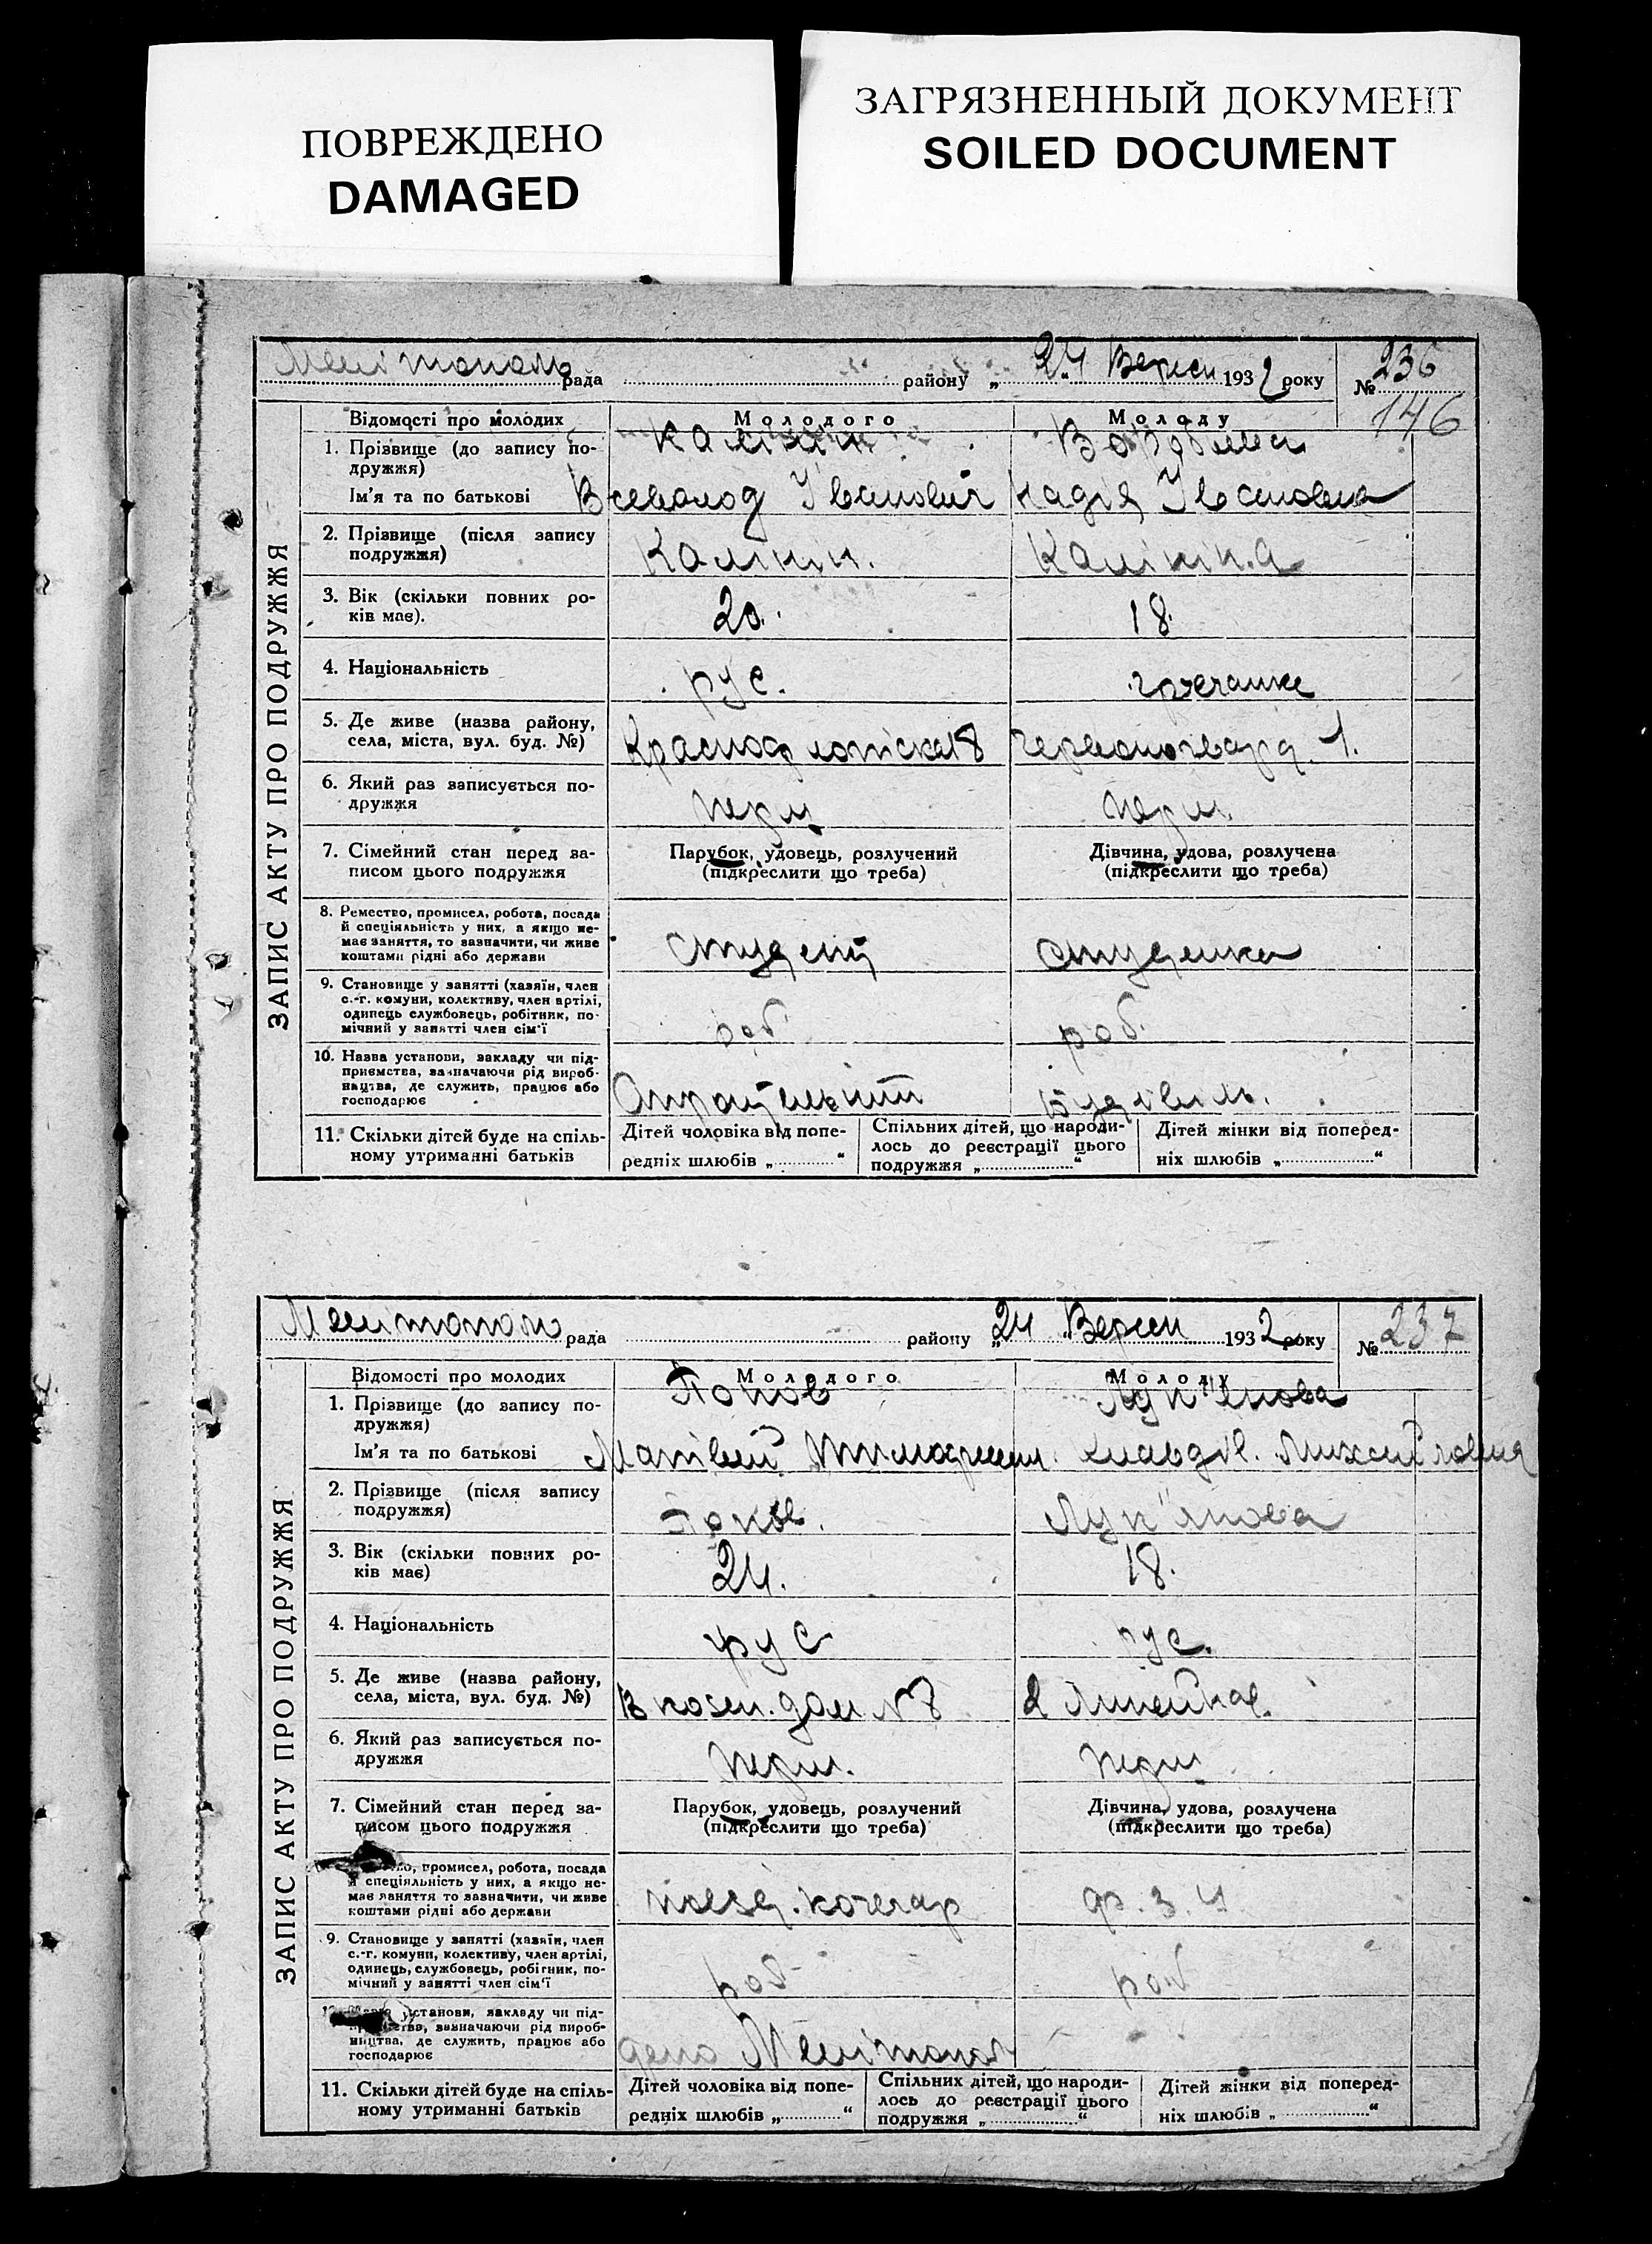 ПОВРЕЖДЕНО
DAMAGED
ЗАГРЯЗНЕННЫЙ ДОКУМЕНТ
SOILED DOCUMENT
ЗАПИС АКТУ ПРО ПОДРУЖЖЯ
Мелітополь рада району „24 Вересн 1932 року № 236
146
Відомості про молодих Молодого Молоду
1. Прізвище (до запису по-
дружжя) Калінін
Ім'я та по батькові Всеволод Іванович Надія Івановна
2. Прізвище (після запису
подружжя) Калінін. Калініна
3. Вік (скільки повних ро-
ків має). 20. 18.
4. Національність рус. гречанка
5. Де живе (назва району,
села, міста, вул. буд. №) 18 Червоногвард. 1.
6. Який раз записується по-
дружжя перш перш.
7. Сімейний стан перед за-
писом цього подружжя
Парубок, удовець, розлучений
(підкреслити що треба)
Дівчина, удова, розлучена
(підкреслити що треба)
8. Ремество, промисел, робота, посада
й спеціяльність у них, а якщо не-
має заняття, то зазначити, чи живе
коштами рідні або держави студент студентка
9. Становище у занятті (хазяїн, член
с.-г. комуни, колективу, член артілі,
одинець службовець, робітник, по-
мічний у занятті член сім'ї роб. роб.
10. Назва установи, закладу чи під-
приємства, зазначаючи рід вироб-
ництва, де служить, працює або
господарює
11. Скільки дітей буде на спіль-
ному утриманні батьків
Дітей чоловіка від попе-
редніх шлюбів „ “
Спільних дітей, що народи-
лось до реєстрації цього
подружжя „ “
Дітей жінки від поперед-
ніх шлюбів „ “
ЗАПИС АКТУ ПРО ПОДРУЖЖЯ
Мелітополь рада району „24 Вересн 1932 року № 237
Відомості про молодих Молодого Молоду
1. Прізвище (до запису по-
дружжя) Попов Луп'янова
Ім'я та по батькові Матвій Клавдія Михайловна
2. Прізвище (після запису
подружжя) Попов. Луп'янова
3. Вік (скільки повних ро-
ків має) 24. 18.
4. Національність рус рус.
5. Де живе (назва району,
села, міста, вул. буд. №) дом №8 2 Линейная
6. Який раз записується по-
дружжя перш. перш
7. Сімейний стан перед за-
писом цього подружжя
Парубок, удовець, розлучений
(підкреслити що треба)
Дівчина, удова, розлучена
(підкреслити що треба)
промисел, робота, посада
й спеціяльність у них, а якщо не-
має заняття то зазначити, чи живе
коштами рідні або держави кочегар
9. Становище у занятті (хазяїн, член
с.-г. комуни, колективу, член артілі,
одинець, службовець, робітник, по-
мічний у занятті член сім'ї роб роб
установи, закладу чи під-
зазначаючи рід вироб-
ництва, де служить, працює або
господарює депо Мелітополь
11. Скільки дітей буде на спіль-
ному утриманні батьків
Дітей чоловіка від попе-
редніх шлюбів „ “
Спільних дітей, що народи-
лось до реєстрації цього
подружжя „ “
Дітей жінки від поперед-
ніх шлюбів „ “